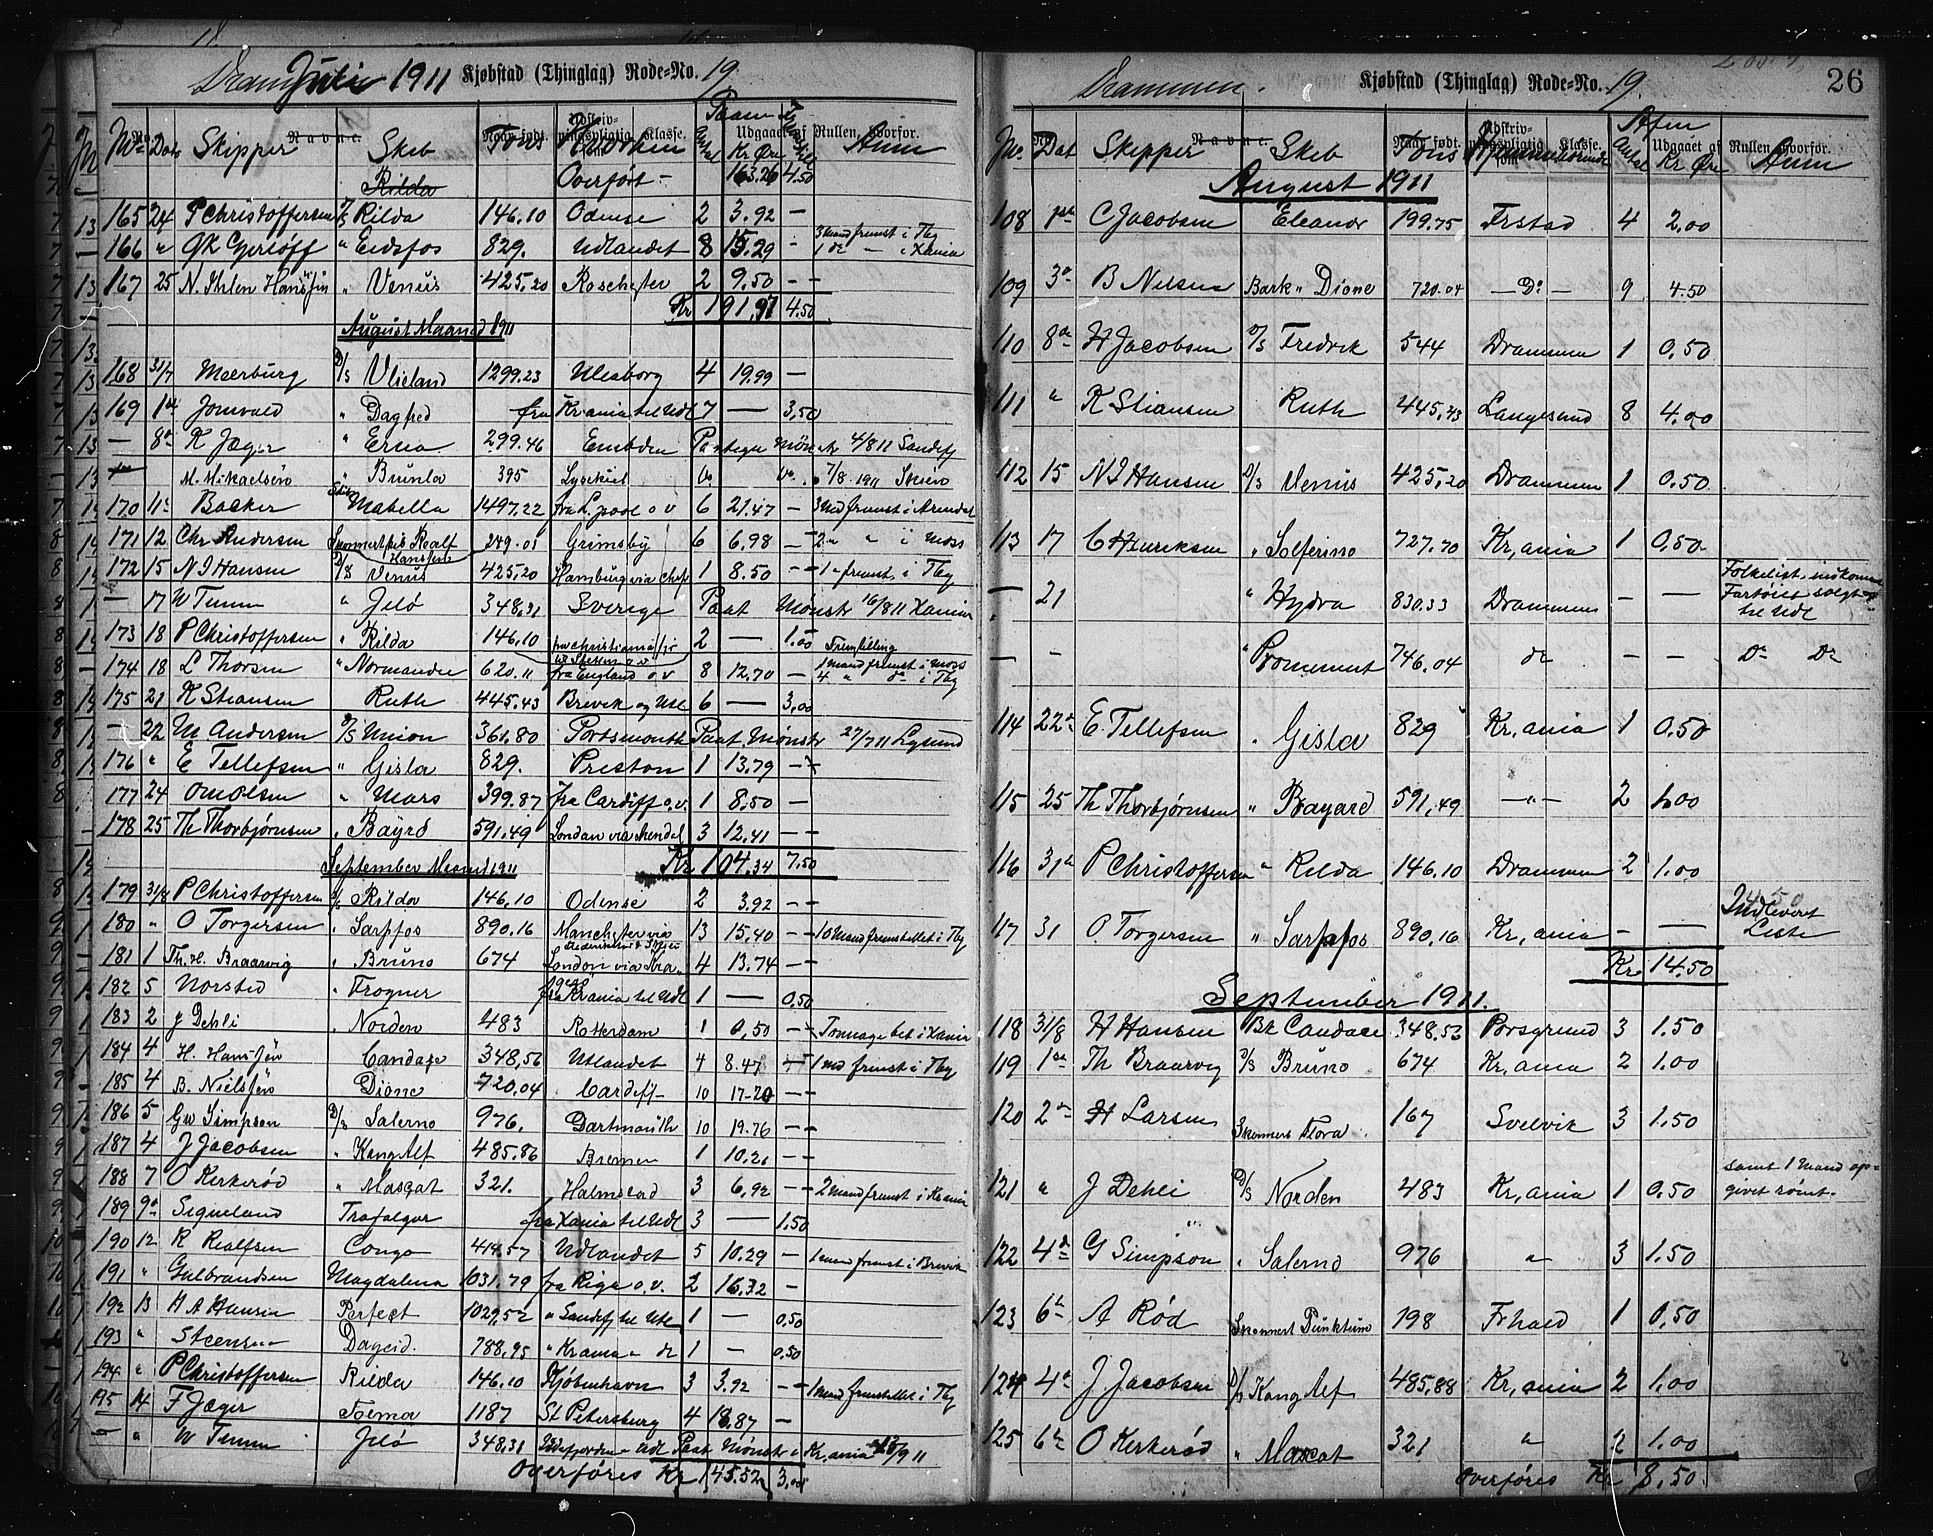 Drammen Juli 1911 Kjøbstad (Thinglag) Rode=No. 19
No. Dato Skipper Skib Tons Hvorhen Antal Udgaaet af Rullen, hvorfor. Kr Øre Anm
Rilda Overført - 163.26 4.50
165 24 P Christoffersen D/S Rilda 146.10 Odense 2 3.92 —
166 " G K Gjerløff " Eidsfos 829. Udlandet 8 15.29 - 3 mand fremst i Tbg
1 do — i Xania
167 25 N. Ihlen Hansen " Venus 425,20 Rochester 2 9,50 — —
Kr 191,97 4.50
August Maaned 1911
168 31/7 Meerburg D/S Vlieland 1299.23 Uleaborg 4 19.99 —
169 1ste Jomvald " Dagfed fra Krania til Udl 7 — 3,50
— 8de K Jæger " Erna 299.46 Embden Paategn Mønstr 4/8 11 Sandefj
M. Mikaelsen " Brunla 395 Lysekiel do do 7/8 1911 Skien
170 11te Backer Mabella 1497.22 fra L.pool o v 6 21.47 — 3 md fremst i Arendal
171 12 Chr Andersen Skonnertskib Realf Hansen 249.01 Grimsby 6 6,98 — 2 " " i Moss
172 15 N I Hansen D/S Venus 425,20 Hamburg via Chr 1 8.50 — 1 - fremst. i Tbg
— 17 W Temm " Jelø 348,31 Sverige Paat Mønstr 16/8 11 Xania
173 18 P Christoffersen " Rilda 146.10 fra Christianiafjr til Stettin o.v 2 — 1.00 Fremstilling
174 18 L Thorsen " Normandie 620.11 fra England o v 8 12,70 — 1 mand fremst i Moss
4 " do i Tbg
175 21 K Stiansen Ruth 445.43 Brevik og Udl 6 — 3,00
— 22 M Andersen D/S Union 361,80 Portsmouth Paat Mønstr 27/7 11 Lysund
176 " E Tellefsen " Gisla 829. Preston 1 13,79 —
177 24 Om Olsen " Mars 399.87 fra Cardiff o.v. 1 8,50 —
178 25 Th Thorbjørnsen " Bayrd 591.49 London via Arendal 3 12.41 — —
Kr 104.34 7.50
September Maaned 1911
179 31/8 P Christoffersen D/S Rilda 146,10 Odense 2 3.92 — —
180 " O Torgersen " Sarpfos 890.16 Manchester via 13 15,40 — — 10 mand fremstillet i Tbg
181 1 Th. H. Braarvig " Bruno 674 London via Kra. 4 13.74 — —
182 5 Norsted " Frogner fra Krania til Udl 1 — 0,50
183 2 J Dehli " Norden 483 Rotterdam 1 0,50 — — Tonnage bet i Xania
184 4 H. Hansen Candace 348,56 Utlandet 4 8.47 — 1 md fremst i Tbg
185 4 B. Nielsen Dione 720.04 Cardiff — 10 17-20 — —
186 5 G W Simpson D/S Salerno 976. Dartmouth 10 19.76 — —
187 4 J Jacobsen " Kong Alf 485.86 Bremen 1 10.21 — —
188 7 O Kerkerød " Mascat 321. Halmstad 3 6,92 — — 2 mand fremst i Krania
189 9de Siqueland Trafalgar fra Xania til Udl 3 — 1.50
190 12 R Realfsen Congo 414.57 Udlandet 5 10.29 — 1 mand fremst i Brevik
191 " Gulbrandsen Magdalena 1031.79 fra Riga o.v. 2 16.32 —
192 13 H A Hansen Perfect 1029,52 " Sandefj til Udl 1 — 0,50
193 " Steensen Dageid. 788,95 " Krania " do 1 — 0,50
194 " P Christoffersen Rilda 146.10 Kjøbenhavn 3 3.92 — — 1 mand fremstillet i Tbg
195 14 F Jæger Toema 1187 St Petersburg 4 18.87 —
— " W Temm Jelø 348.31 Udl Paat Mønstr i Kr,ania 13/9 11
Overføres Kr 145.52 3,00
Drammen. Kjøbstad (Thinglag) Rode=No. 19. 26
No. Dat Skipper Skib Tons Hjemmehørende Afm Antal Udgaaet af Rullen, hvorfor. Kr Øre Anm
August 1911
108 1ste C Jacobsen Eleanor 199.75 Frstad 4 2.00
109 3de B Nilsen Bark " Dione 720.04 — Do — 9 4.50
110 8de H Jacobsen D/S Fredrik 544 Drammen 1 0.50
111 " K Stiansen Ruth 445,43 Langesund 8 4.00
112 15 N I Hansen D/S Venus 425,20 Drammen 1 0.50
113 17 C Henriksen " Solferino 727.70 Kr,ania 1 0,50
— 21 " Hydra 830.33 Drammen — — Folkelist, indkommen
Fartøiet solgt
til Udl
— — " Prominent 746.04 do — — Do Do
114 22de E. Tellefsen " Gisla 829 Kr,ania 1 0.50
115 25 Th Thorbjørnsen " Bayard 591,49 — " — 2 1.00
116 31te P Christoffersen " Rilda 146.10 Drammen 2 1.00
117 31 O Torgersen " Sarpfos 890,16 Kr,ania — — Indleveret
Liste
Kr 14.50
September 1911.
118 31/8 H Hansen Bk Candace 348.56 Porsgrund 3 1.50
119 1ste Th Braarvig D/S Bruno 674 Kr,ania 2 1.00
120 2den H Larsen Skonnert Flora 167 Svelvik 3 1.50
121 " J Dehli D/S Norden 483 Kr,ania 1 0.50 samt 1 mand op=
givet rømt.
122 4de G Simpson " Salerno 976 " 3 1.50
123 6te A Rød Skonnert Punktum 198 Frhald 1 0,50
124 4de J Jacobsen D/S Kong Alf 485,88 Kr,ania 2 1.00
125 6te O Kerkerød " Mascat 321 " 2 1.00
Overføres Kr 8.50